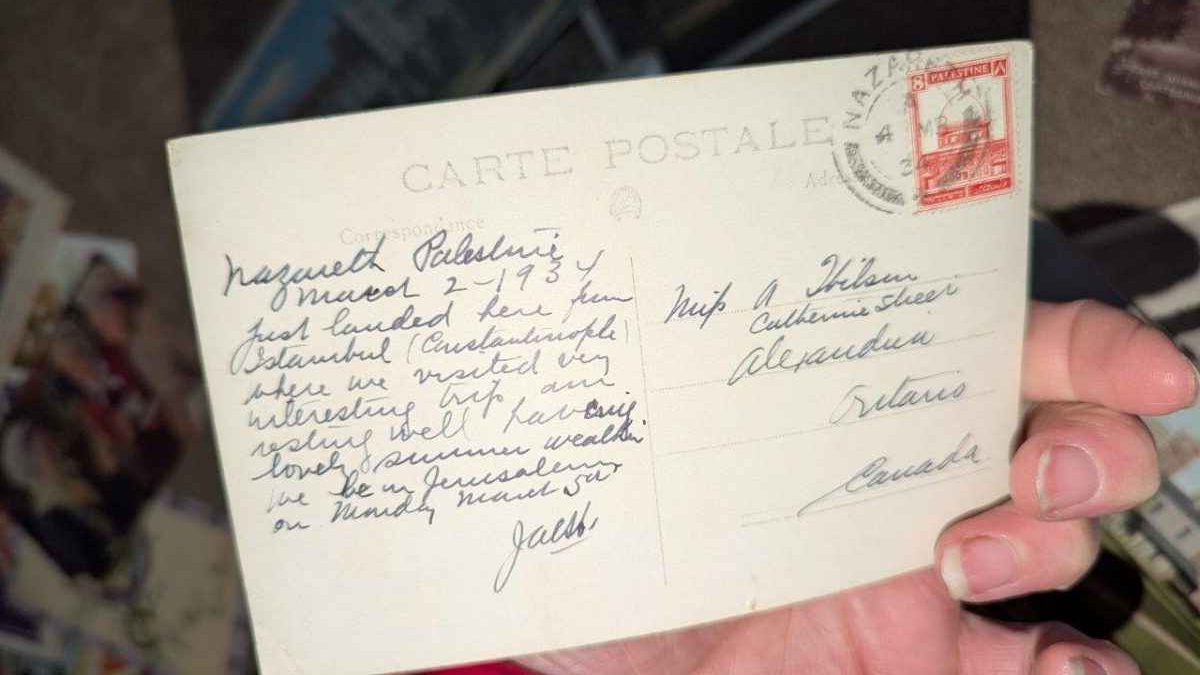 CARTE POSTALE
Correspondance
Nazareth Palestine
March 2-1934
Just landed here from
Istanbul (Constantinople)
where we visited very
interesting trip am
resting well having
lovely summer weather
we be in Jerusalem
on Monday March 5th
Miss A
Catherine Street
Alexandria
Ontario
Canada
8 PALESTINE ٨
NAZARETH
4 MR
34